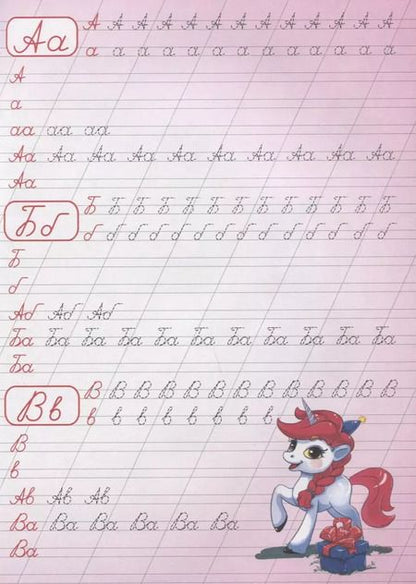 Аа
А А А А А А А А А А А А А
а а а а а а а а а а а а а
А
а
аа аа аа
Аа Аа Аа Аа Аа Аа Аа Аа Аа Аа
Аа
Бб
Б Б Б Б Б Б Б Б Б Б Б Б Б
б б б б б б б б б б б б б б б
Б
б
Аб Аб Аб
Ба Ба Ба Ба Ба Ба Ба Ба Ба Ба Ба
Ба
Вв
В В В В В В В В В В В В В
в в в в в в в в
В
в
Ав Ав Ав
Ва Ва Ва Ва Ва Ва
Ва